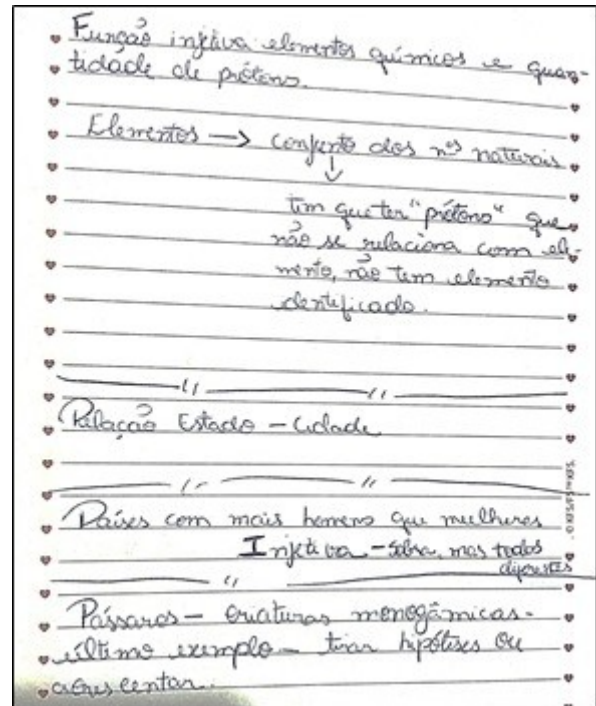 Função injetiva elementos químicos e quan-
tidade de prótons.
Elementos → conjunto dos nºs naturais
↓
tem que ter "prótons" que
não se relaciona com ele-
mento, não tem elemento
identificado.
Relação Estado - Cidade
Países com mais homens que mulheres
Injetiva - sobra, mas todos
diferentes
Pássaros - criaturas monogâmicas -
último exemplo - tirar hipóteses ou
acrescentar.